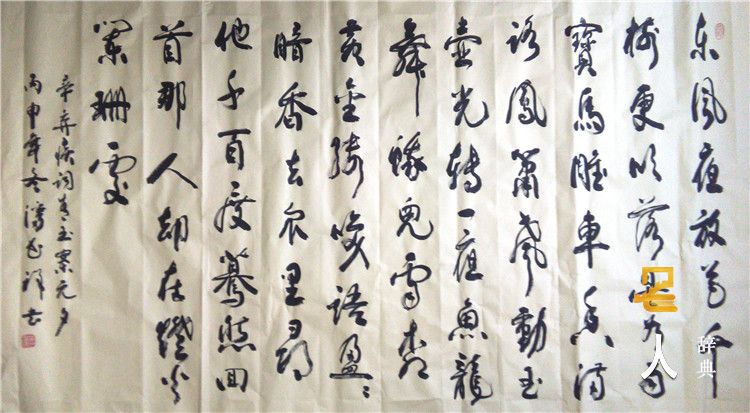 东風夜放花千
樹更吹落星如雨
寶馬雕車香满
路鳳簫聲動玉
壶光转一夜魚龍
舞蛾兒雪柳
黄金缕笑语盈盈
暗香去众里尋
他千百度驀然回
首那人却在燈火
阑珊處
辛弃疾词青玉案元夕
丙申年冬潘祥书
名人
辞典